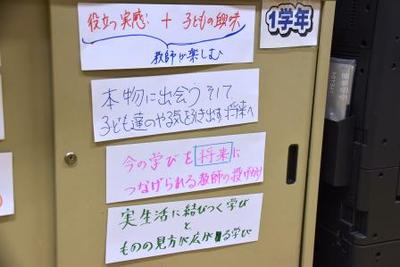 役立つ実感 + 子どもの興味
教師が楽しむ
1学年
本物に出会う そして
子ども達のやる気を引き出す 将来へ
今の学びを 将来 に
つなげられる教師の投げかけ
実生活に結びつく学び
と
ものの見方が広がる学び